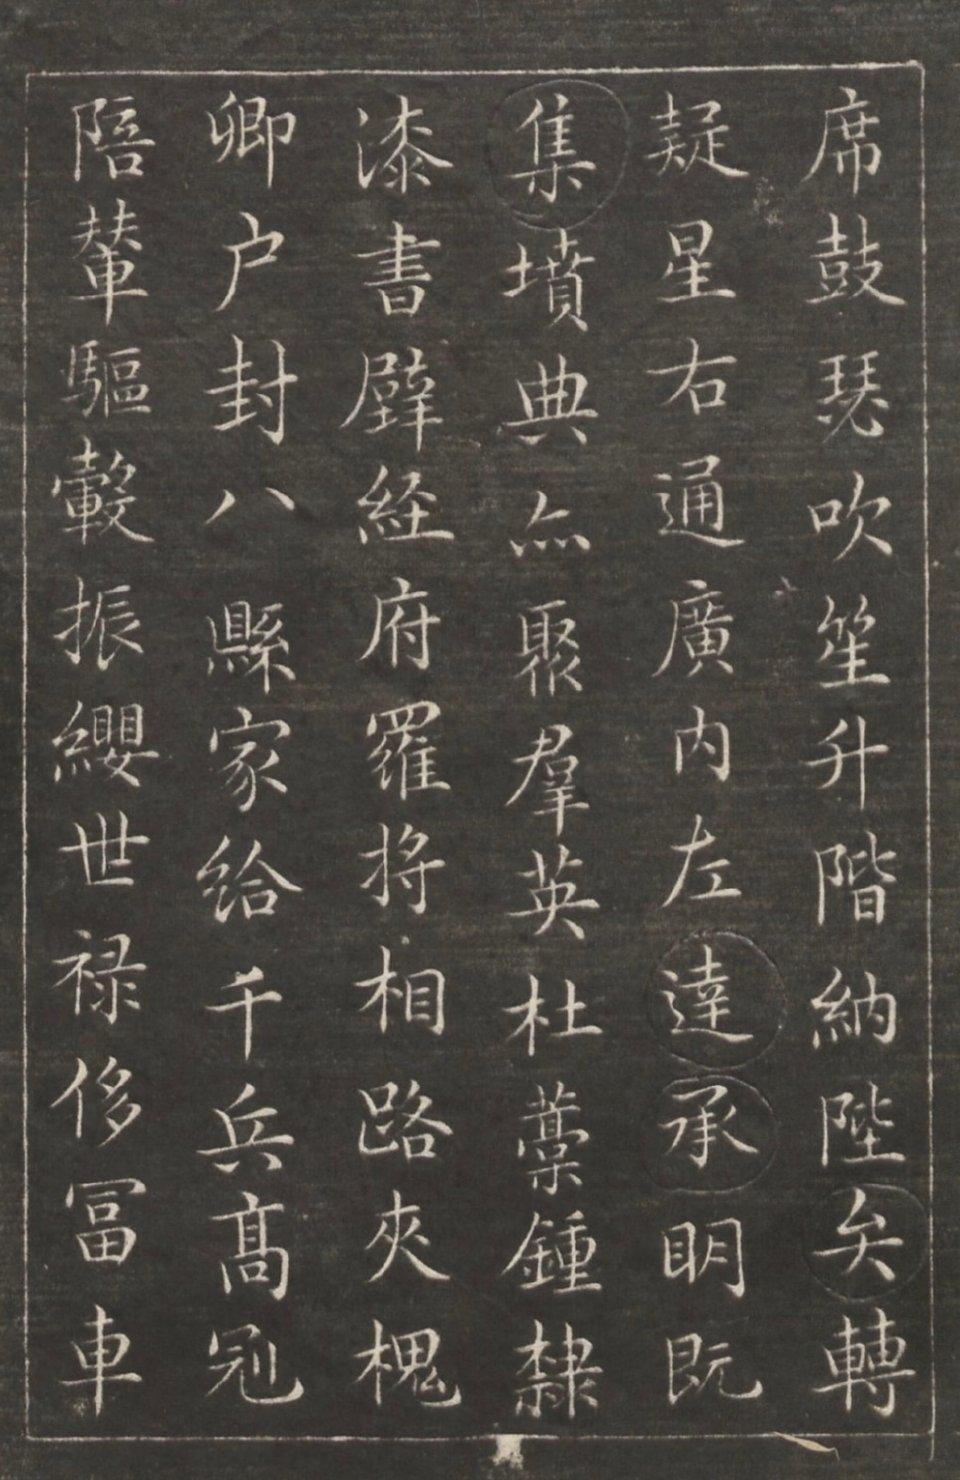 席鼓瑟吹笙升階納陛矣轉
疑星右通廣内左達承眀既
集墳典亦聚羣英杜藁鍾隸
漆書壁経府羅将相路夾槐
卿户封八縣家給千兵髙冠
陪輦驅轂振纓世禄侈冨車